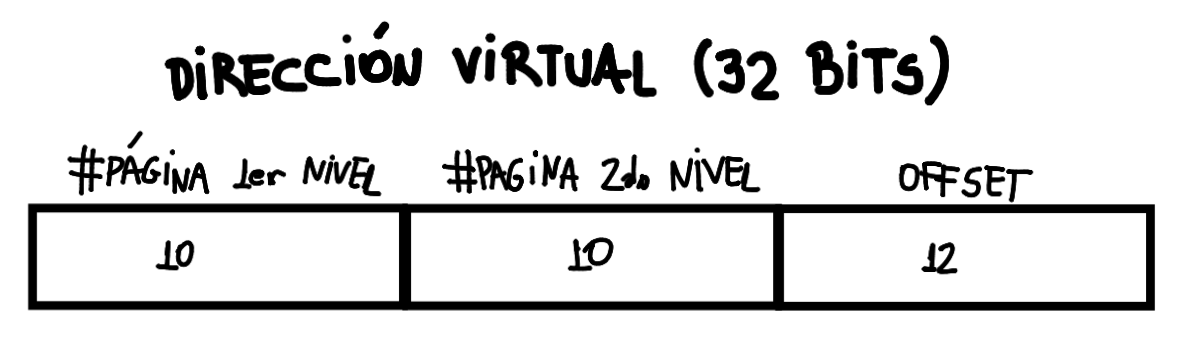 DiRECCiÓN ViRTUAL (32 BiTS)
#PÁGiNA 1er NiVEL #PAGiNA 2do NiVEL OFFSET
10 10 12